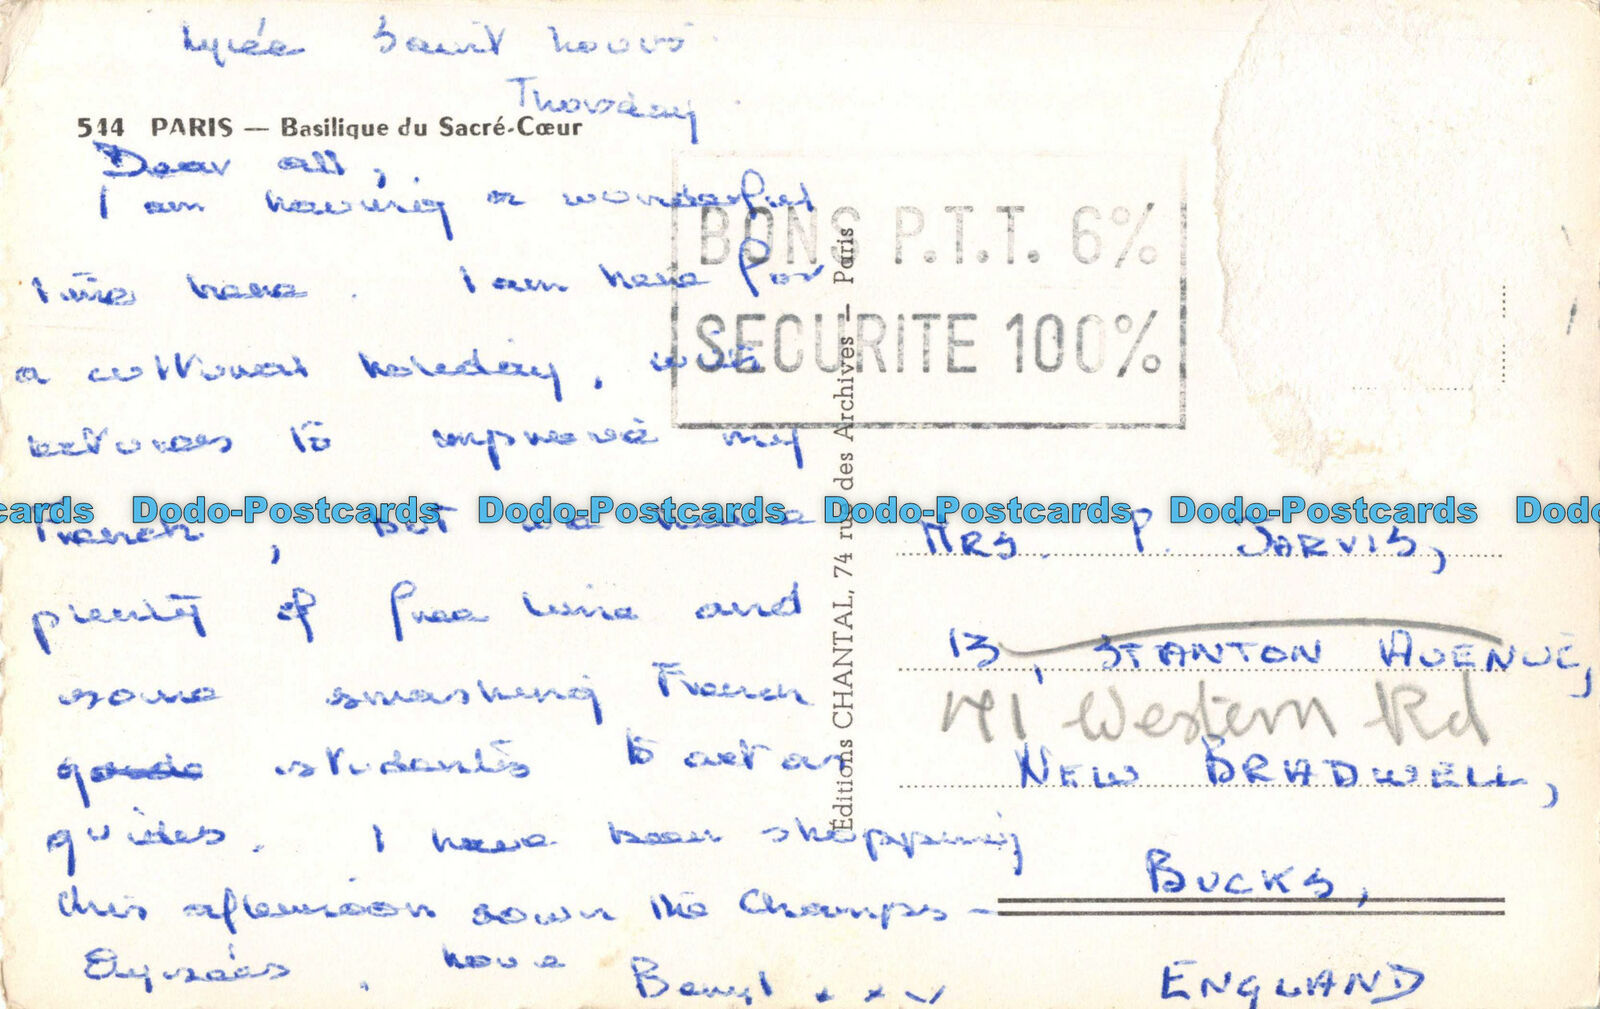 Lycée Saint Louis.
Thursday.
544 PARIS — Basilique du Sacré-Cœur
Dear all,
I am having a wonderful
time here. I am here for
a cultural holiday, with
lectures to improve my
French, but we have
plenty of free time and
some smashing French
students to act as
guides. I have been shopping
this afternoon down the Champs-
Elysées. Love Beryl x x x
BONS P.T.T. 6%
SECURITE 100%
Éditions CHANTAL, 74 rue des Archives — Paris
MRS. P. JARVIS,
13, STANTON AVENUE,
171 Western Rd
NEW BRADWELL,
BUCKS,
ENGLAND
cards Dodo-Postcards Dodo-Postcards Dodo-Postcards Dodo-Postcards Dodo